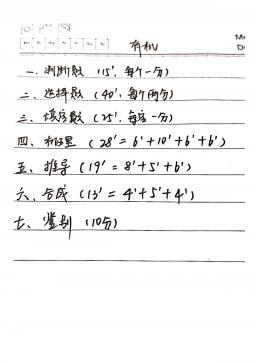 有机
一、判断题（15'，每个一分）
二、选择题（40'，每个两分）
三、填空题（25'，每空一分）
四、机理（28'=6'+10'+6'+6'）
五、推导（19'=8'+5'+6'）
六、合成（13'=4'+5'+4'）
七、鉴别（10分）